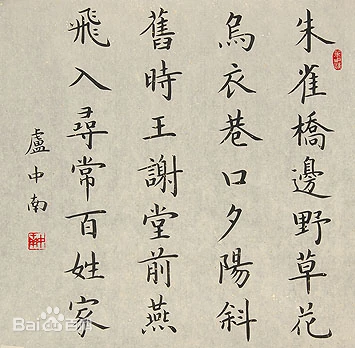 朱雀橋邊野草花
烏衣巷口夕陽斜
舊時王謝堂前燕
飛入尋常百姓家
盧中南
Baidu百科